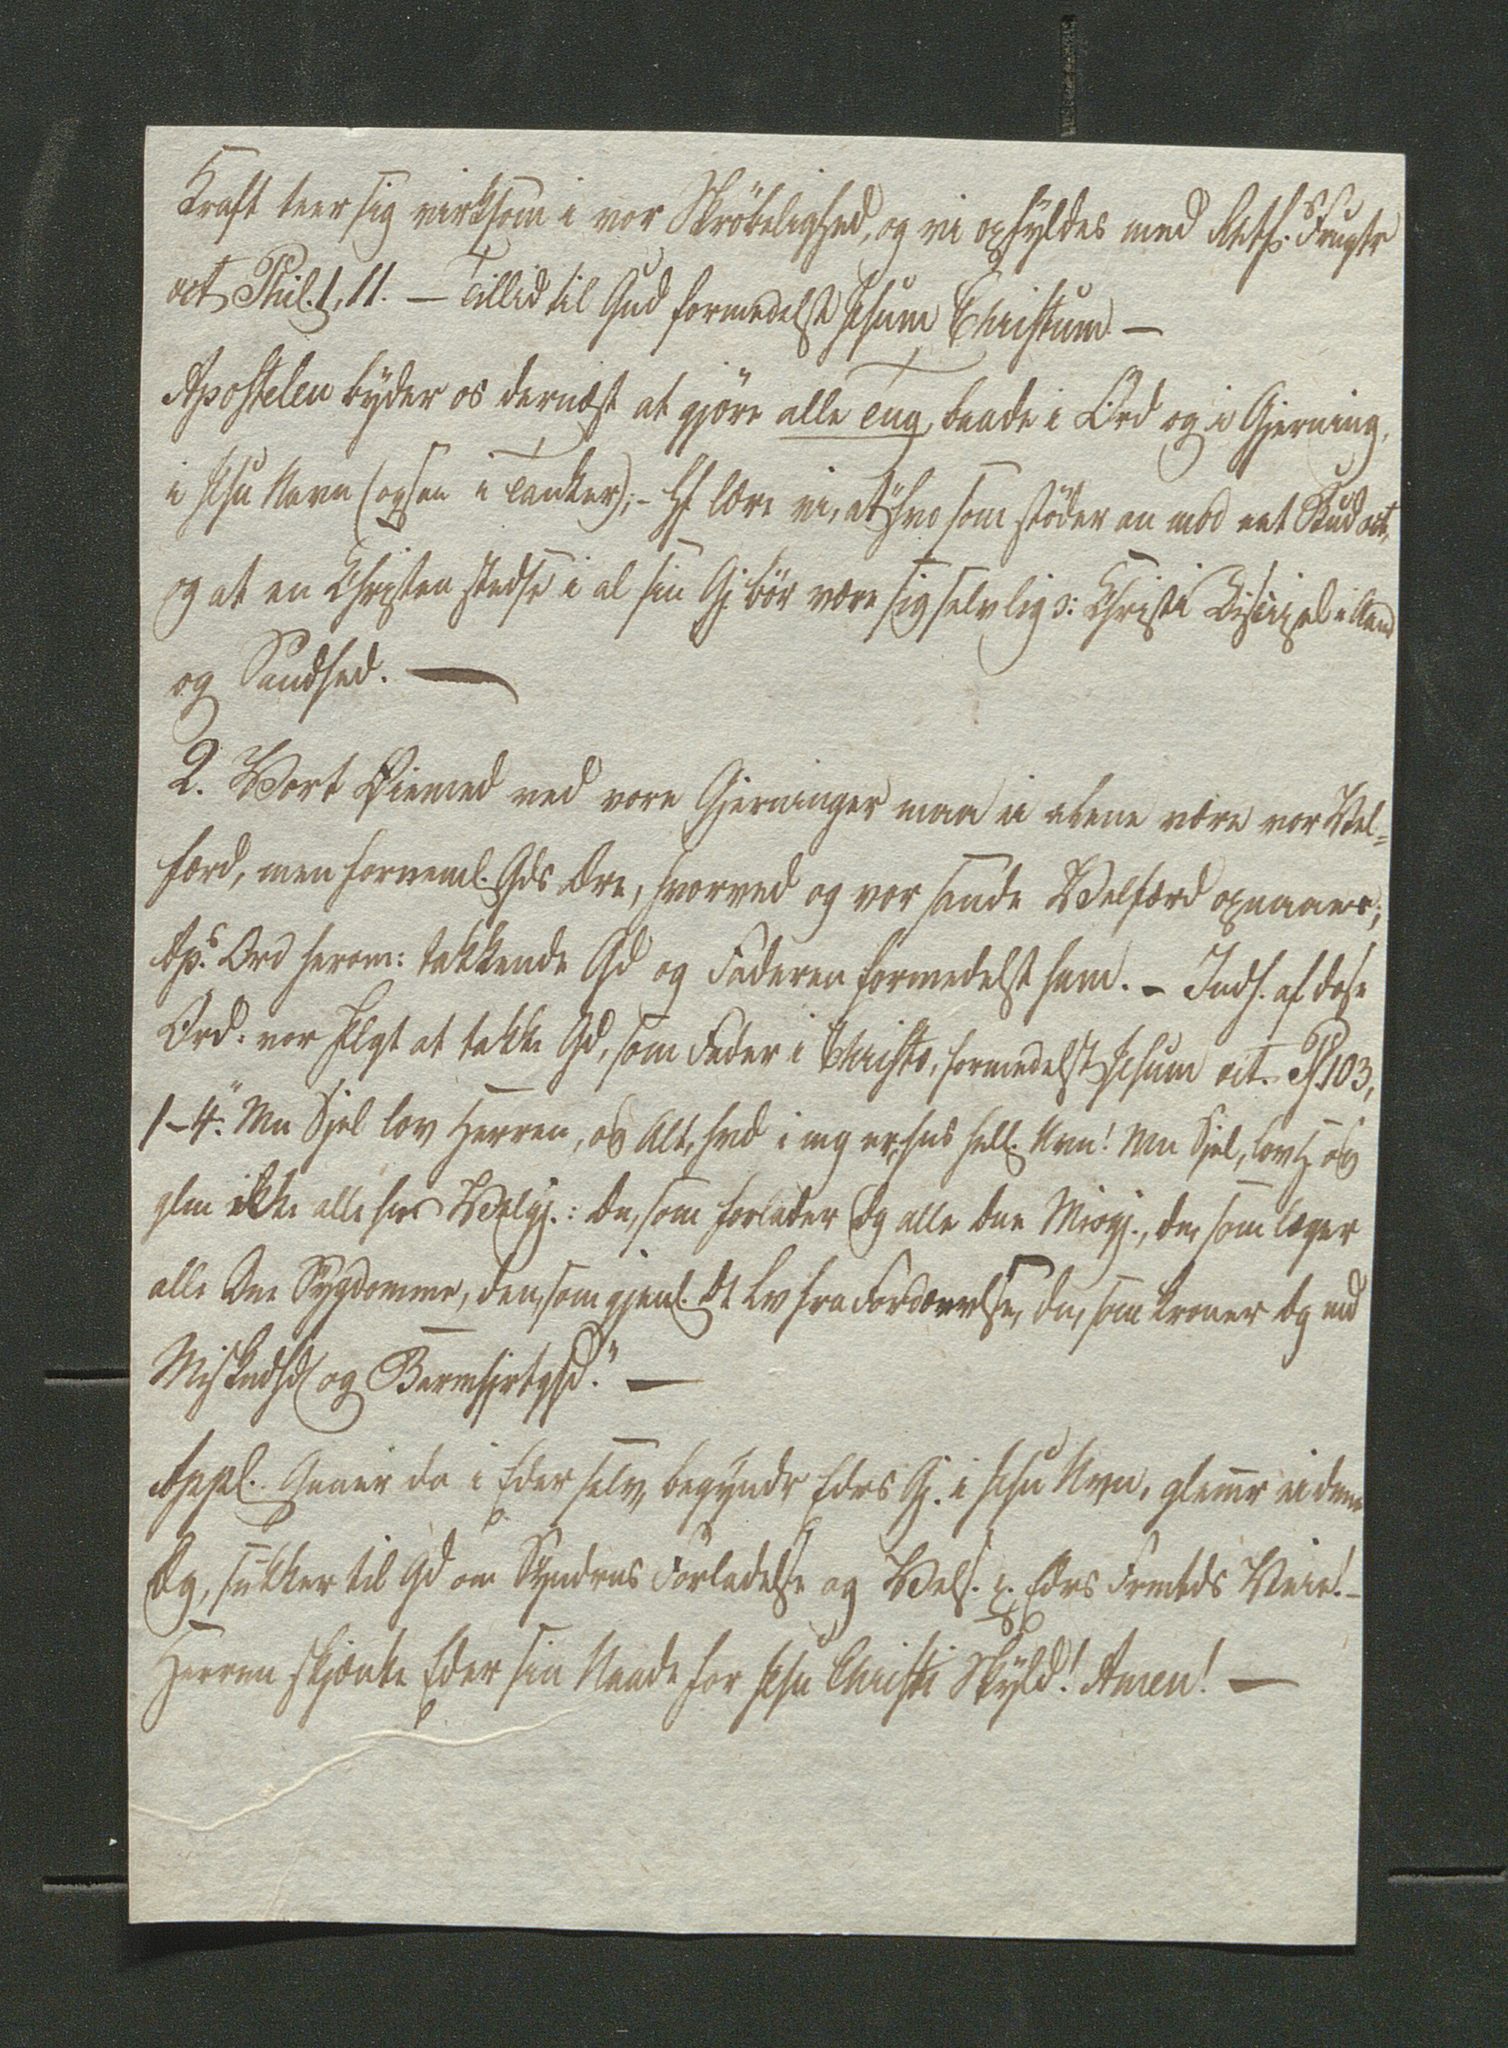 Kraft teer sig virksom i vor Skröbelighed, og vi opfyldes med Retf.s Frugtr
act Phil. 1, 11. — Tillid til Gud formedelst Jesum Christum —
Apostelen byder os dernæst at gjöre alle Ting, baade i Ord og i Gjerning,
i Jesu Navn (ogsaa i Tanker); - Hf lære vi, at hvo som stöder an mod eet Bud act,
og at en Christen stedse i al sin Gj. bör være sig selv lig ɔ: Christi Discipel i Aand
og Sandhed. —
2. Vort Öiemed ved vore Gjerninger maa ei alene være vor Vel-
færd, men forneml. Gds Ære, hvorved og vor sande Velfærd opnaaes;
Ap.s Ord herom: takkende Gd og Faderen formedelst ham. - Indh. af disse
Ord. vor Plgt at takke Gd, som Fader i Christo, formedelst Jesum act. Ps. 103,
1-4. "Mn Sjel lov Herren, og Alt, hvd i mg er, hns hell. Nvn! Mn Sjel, lov H og
glm ikke alle hns Velgj.: Dn, som forlader dg alle dne Misgj., dn, som læger
alle dne Sygdomme, den, som gjenl. dt Lv fra Fordærvelse, dn, som kroner dg md
Miskndhd og Barmhjrtghd." —
Appl. Gaaer da i Eder selv, begyndr Edrs Gj. i Jesu Nvn, glemr ei denne
Dg, sukker til Gd om Syndrns Forladelse og Vels. p. Edrs Fremtds Veie! -
Herren skjænke Eder sin Naade for Jesu Christi Skyld! Amen! —